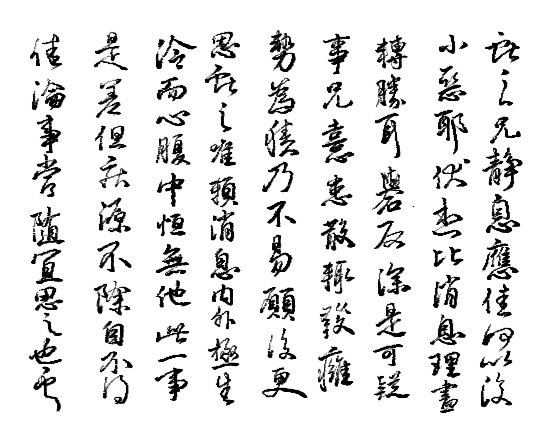 獻之兄静息應佳何以復
小惡耶伏想比消息理盡
轉勝耳礜石深是可疑
事兄憙患散輒發癰
勢為積乃不易願復更
思獻之唯賴消息内外極生
冷而心腹中恒無他此一事
是差但疾源不除自不得
佳論事當隨宜思之也